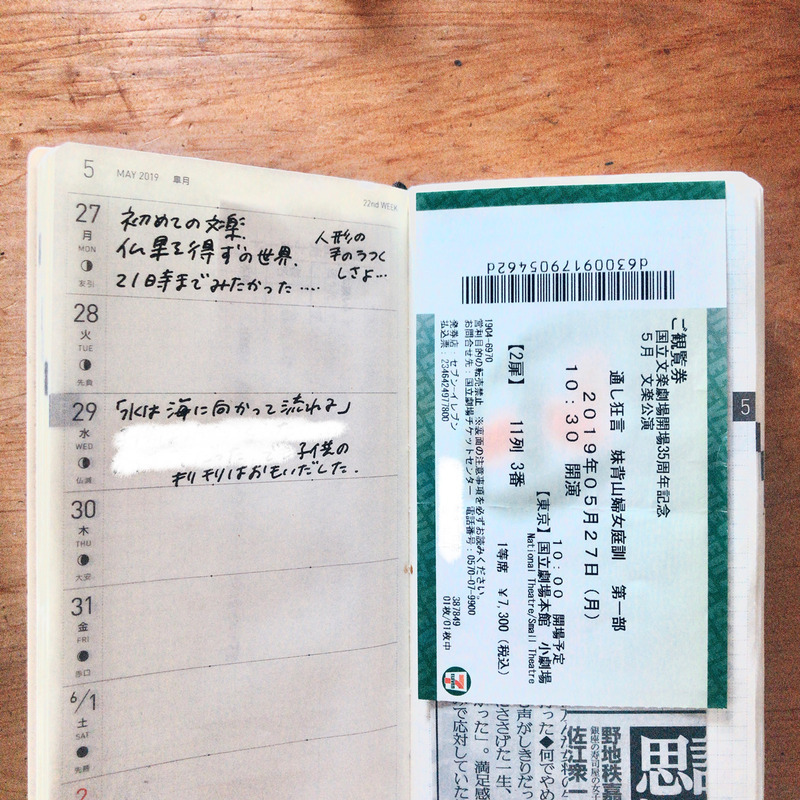 5 MAY 2019 皐月
22nd WEEK
27
月
MON
友引
初めての文楽.
仏果を得ずの世界.
21時までみたかった....
人形の
手のうつく
しさよ...
28
火
TUE
先負
29
水
WED
仏滅
「水は海に向かって流れる」
子供の
キリキリはおもいだした.
30
木
THU
大安
31
金
FRI
赤口
6/1
土
SAT
先勝
2
d63000917905462d
ご観覧券
国立文楽劇場開場35周年記念
5月 文楽公演
通し狂言 妹背山婦女庭訓 第一部
2019年05月27日（月）
10:30 開演
10:00 開場予定
【東京】国立劇場本館 小劇場
National Theatre/Small Theatre
【2扉】 11列 3番
1等席 ￥7,300（税込）
1904-6970
営利目的の転売禁止 ※裏面の注意事項を必ずお読みください。
お問合せ先：国立劇場チケットセンター 電話番号：0570-07-9900
発券店：セブン-イレブン
払込票：2346424977800
387849
01枚/01枚中
5
野地秩嘉
銀座の寿司屋の女子
佐江衆一
思
った◆何でや
満足感
で応対していた